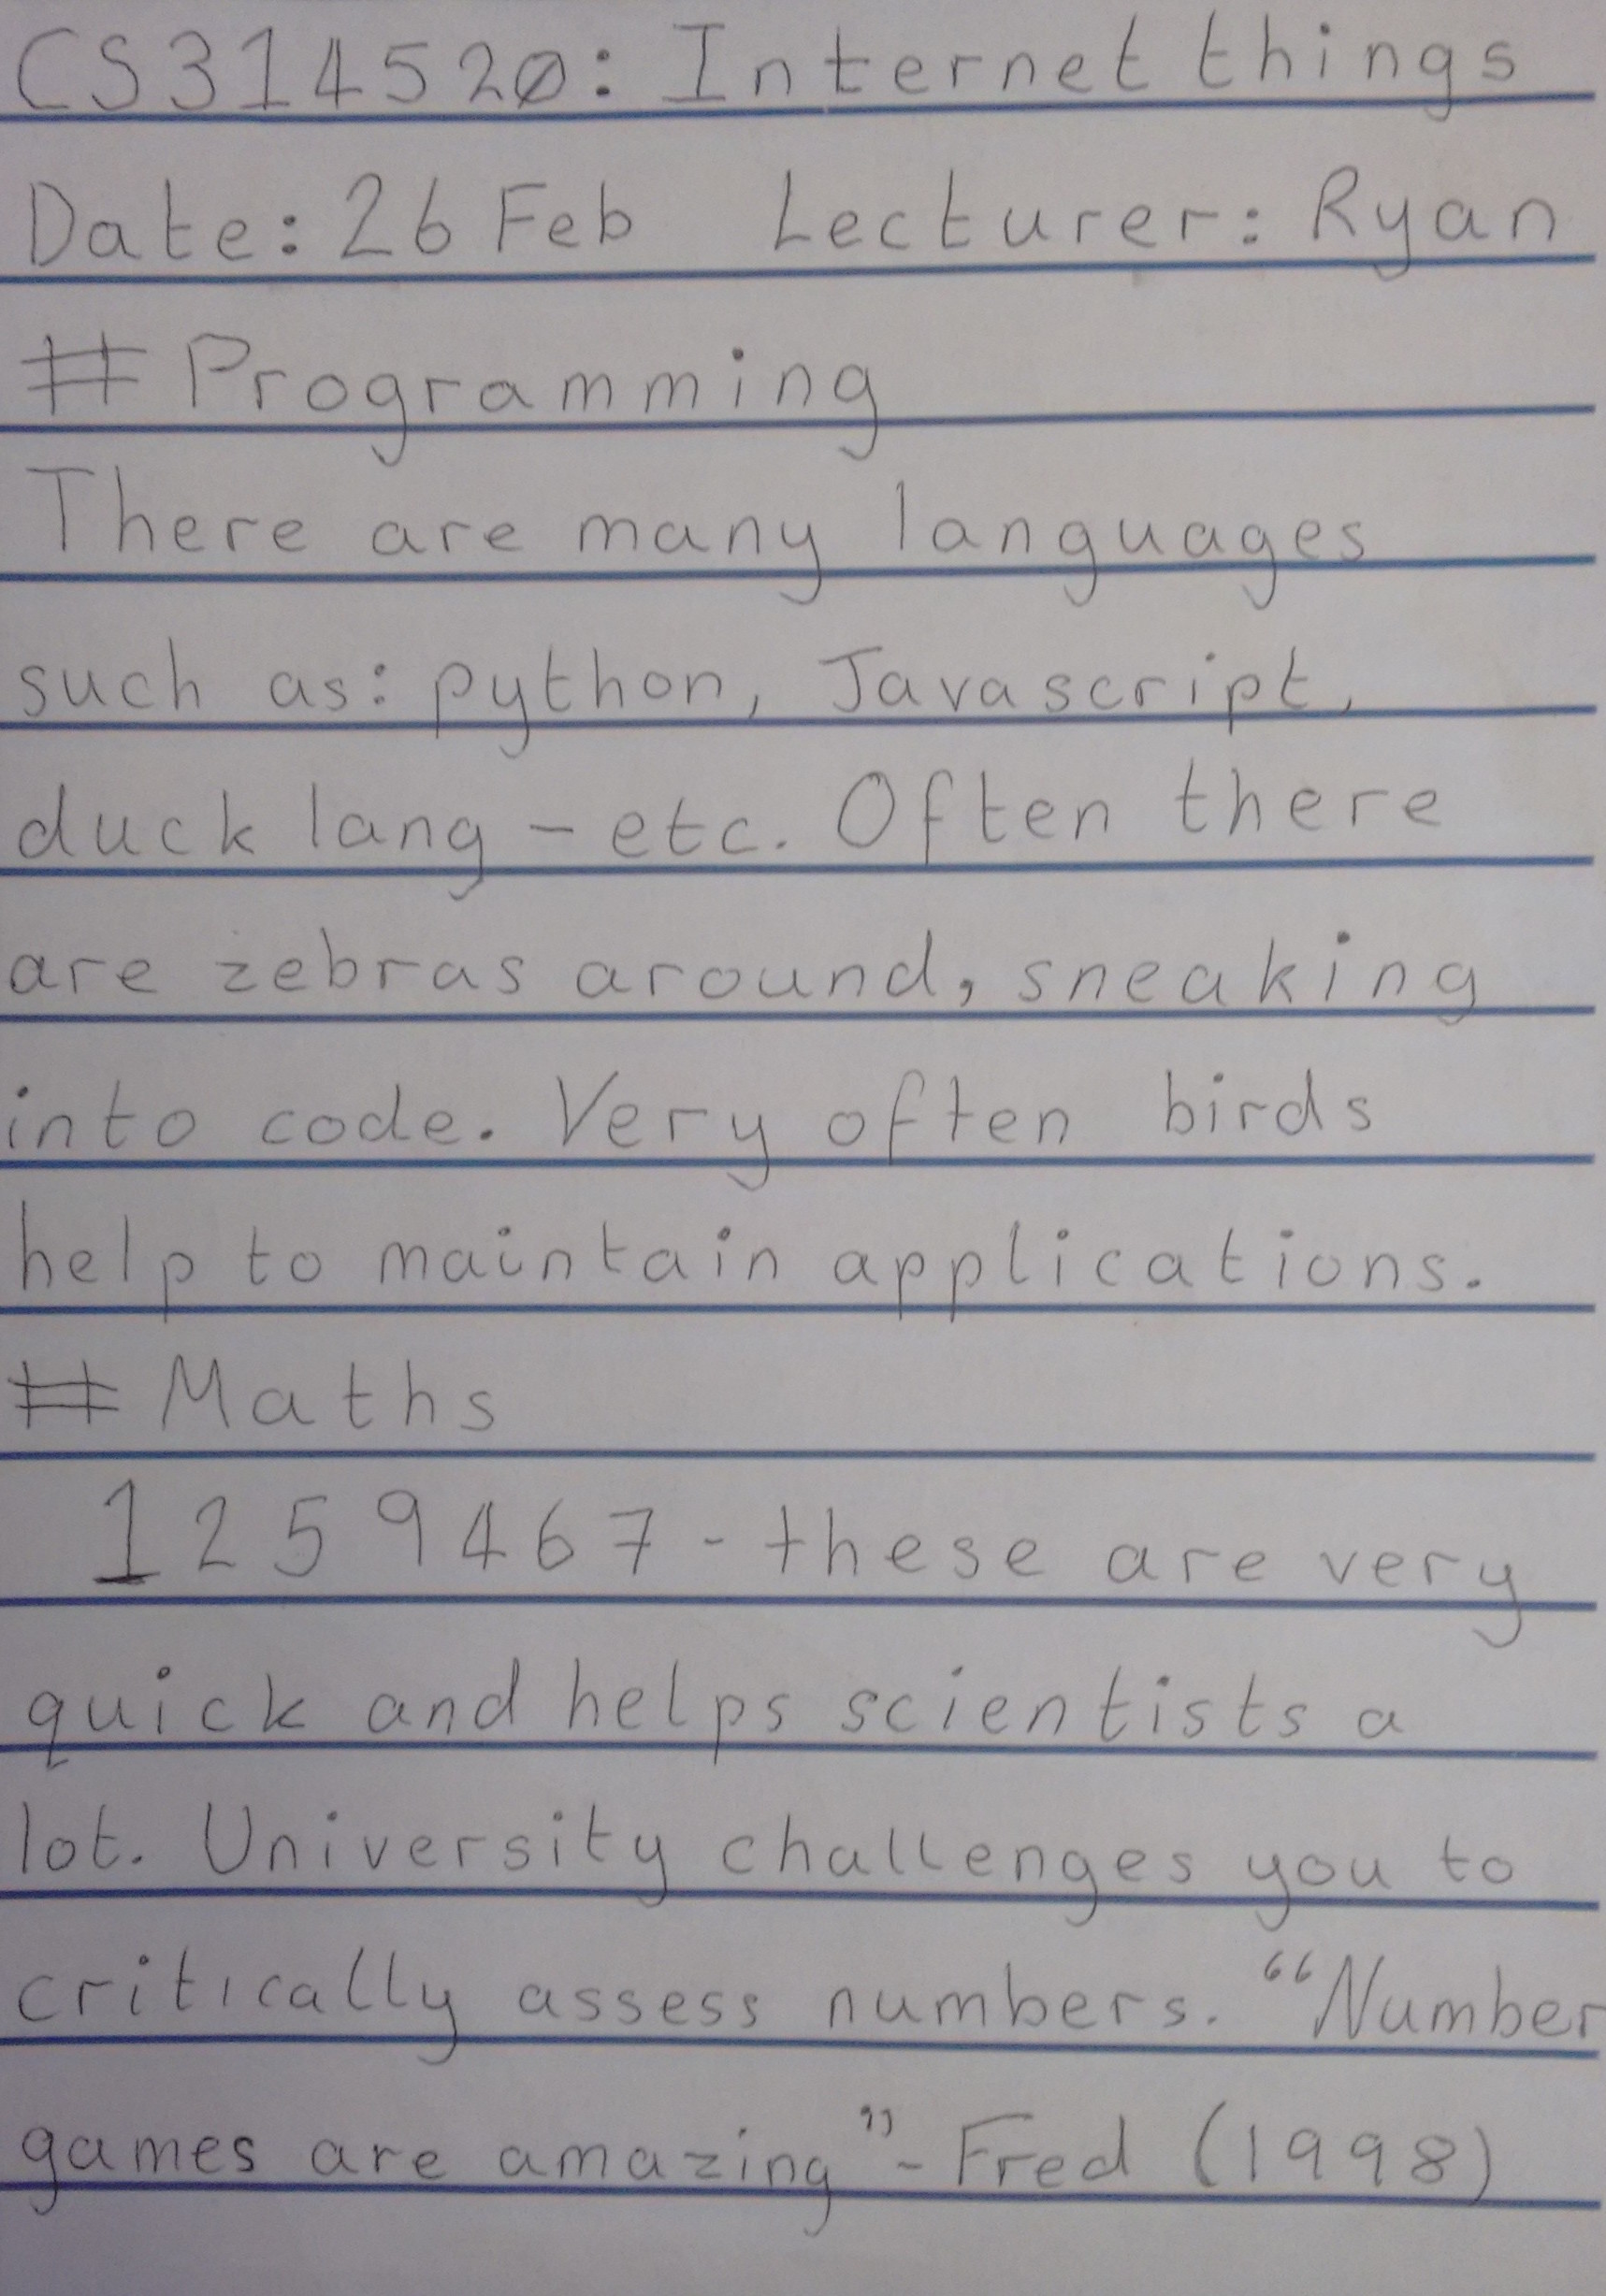 CS314520: Internet things
Date: 26 Feb Lecturer: Ryan
# Programming
There are many languages
such as: python, Javascript,
duck lang - etc. Often there
are zebras around, sneaking
into code. Very often birds
help to maintain applications.
# Maths
1 2 5 9 4 6 7 - these are very
quick and helps scientists a
lot. University challenges you to
critically assess numbers. “Number
games are amazing” - Fred (1998)